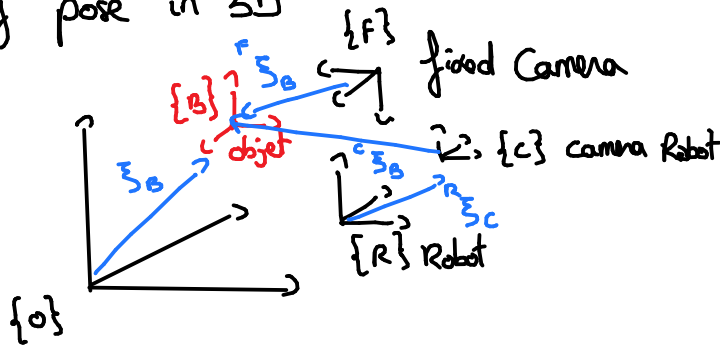 pose in 3D
{F} fixed Camera
F ξ B
{B}
objet
{C} camera Robot
C ξ B
ξ B
R ξ C
{R} Robot
{O}